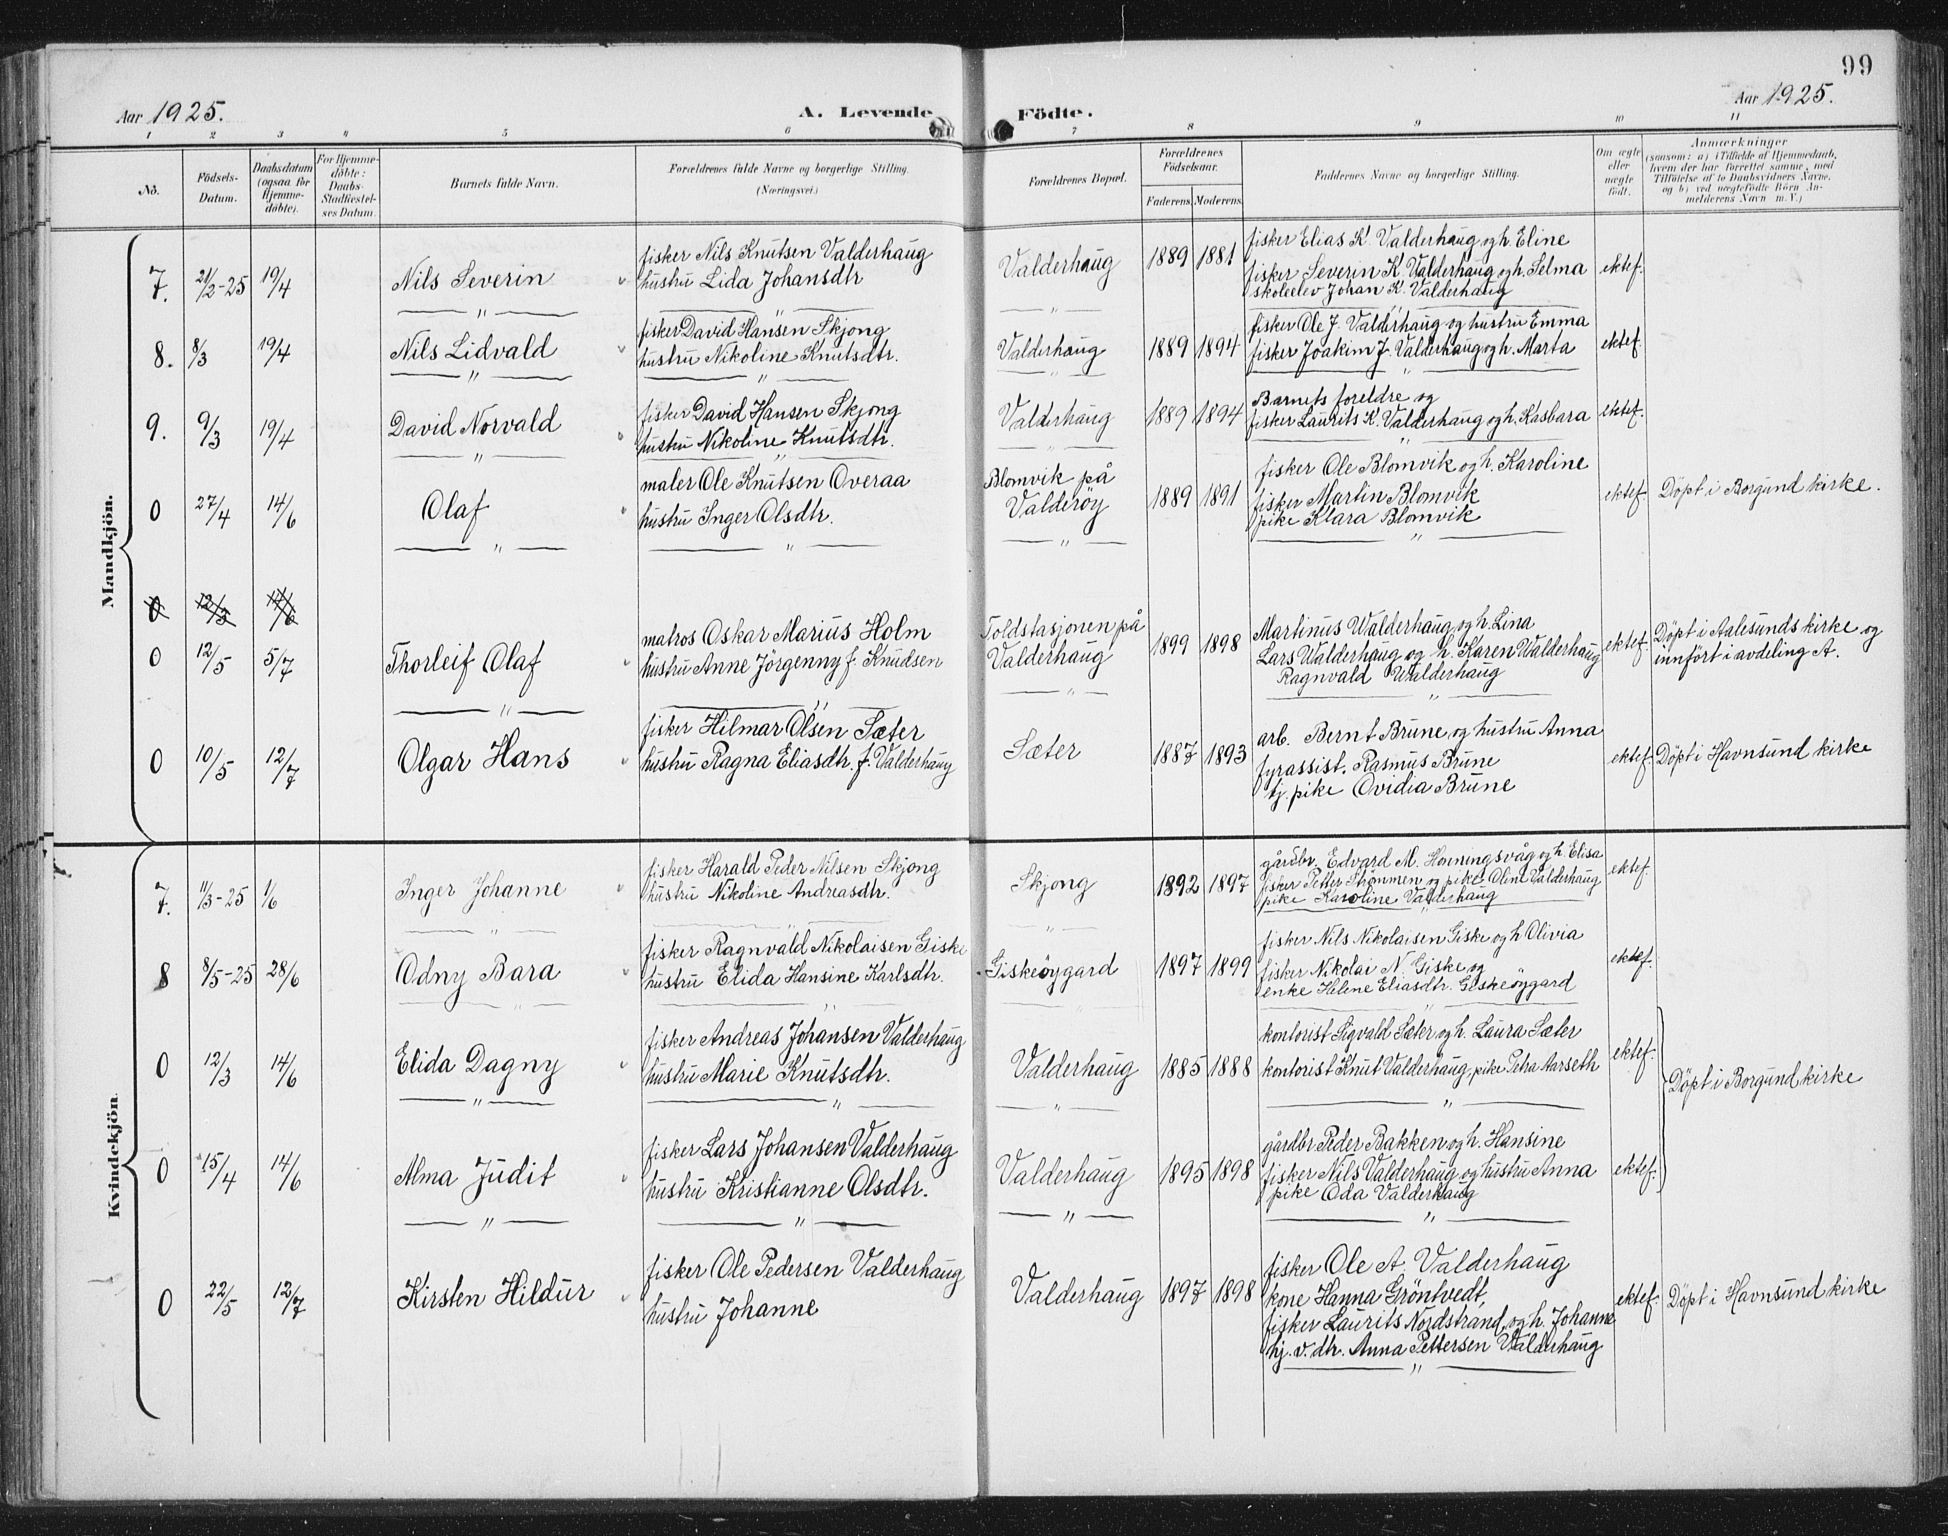 99
Aar 1925.
A. Levende Fødte.
Aar 1925.
1 2 3 4 5 6 7 8 9 10 11
No.
Fødsels-Datum.
Daabsdatum (ogsaa for Hjemme-døbte).
For Hjemme-døbte: Daabs-Stadfæstel-ses Datum.
Barnets fulde Navn.
Forældrenes fulde Navne og borgerlige Stilling. (Næringsvei.)
Forældrenes Bopæl.
Forældrenes Fødselsaar.
Faderens. Moderens.
Faddernes Navne og borgerlige Stilling.
Om ægte eller uægte født.
Anmærkninger
(saasom: a) i Tilfælde af Hjemmedaab,
hvem der har forrettet samme, med
Tilføielse af to Daabsvidners Navne,
og b) ved uægtefødte Børn An-
melderens Navn m. V.)
Mandkjön.
7. 21/2-25 19/4 Nils Severin
fisker Nils Knutsen Valderhaug
hustru Lida Johansdtr
Valderhaug 1889 1881
fisker Elias K. Valderhaug og h. Eline
fisker Severin K. Valderhaug og h. Selma
skoleelev Johan K. Valderhaug
ektef.
8. 8/3 19/4 Nils Lidvald
fisker David Hansen Skjong
hustru Nikoline Knutsdtr.
Valderhaug 1889 1894
fisker Ole J. Valderhaug og hustru Emma
fisker Joakim J. Valderhaug og h. Marta
ektef.
9. 9/3 19/4 David Norvald
fisker David Hansen Skjong
hustru Nikoline Knutsdtr.
Valderhaug 1889 1894
Barnets foreldre og
fisker Laurits K. Valderhaug og h. Kasbara
ektef.
0 27/4 14/6 Olaf
maler Ole Knutsen Overaa
hustru Inger Olsdtr.
Blomvik på
Valderöy 1889 1891
fisker Ole Blomvik og h. Karoline
fisker Martin Blomvik
pike Klara Blomvik
ektef. Döpt i Borgund kirke.
0 12/3 14/6
0 12/5 5/7 Thorleif Olaf
matros Oskar Marius Holm
hustru Anne Jörgenny f. Knudsen
Toldstasjonen på
Valderhaug 1899 1898
Martinus Walderhaug og h. Lina
Lars Walderhaug og h. Karen Walderhaug
Ragnvald Walderhaug
ektef. Döpt i Aalesunds kirke og
innfört i avdeling A.
0 10/5 12/7 Olgar Hans
fisker Hilmar Olsen Sæter
hustru Ragna Eliasdtr. f. Valderhaug
Sæter 1887 1893
arb. Bernt Brune og hustru Anna
fyrassist. Rasmus Brune
hj. pike Ovidia Brune
ektef. Döpt i Havnsund kirke
Kvindekjön.
7. 11/3-25 1/6 Inger Johanne
fisker Harald Peder Nilsen Skjong
hustru Nikoline Andreasdtr.
Skjong 1892 1897
gårdbr. Edvard M. Honningsvåg og h. Elisa
fisker Petter Strømmen og pike Oline Valderhaug
pike Karoline Valderhaug
ektef.
8 8/5-25 28/6 Odny Bara
fisker Ragnvald Nikolaisen Giske
hustru Elida Hansine Karlsdtr.
Giskeöygard 1897 1899
fisker Nils Nikolaisen Giske og h Olivia
fisker Nikolai N. Giske og
enke Helene Eliasdtr. Giskeöygard
ektef.
0 12/3 14/6 Elida Dagny
fisker Andreas Johansen Valderhaug
hustru Marie Knutsdtr.
Valderhaug 1885 1888
kontorist Sigvald Sæter og h. Laura Sæter
kontorist Knut Valderhaug, pike Petra Aarseth
ektef.
Döpt i Borgund kirke
0 15/4 14/6 Alma Judit
fisker Lars Johansen Valderhaug
hustru Kristianne Olsdtr.
Valderhaug 1895 1898
gårdbr Peder Bakken og h. Hansine
fisker Nils Valderhaug og hustru Anna
pike Oda Valderhaug
ektef.
0 22/5 12/7 Kirsten Hildur
fisker Ole Pedersen Valderhaug
hustru Johanne
Valderhaug 1897 1898
fisker Ole A. Valderhaug
kone Hanna Gröntvedt,
fisker Laurits Nordstrand, og h. Johanne
hj. v. dtr. Anna Pettersen Valderhaug
ektef. Döpt i Havnsund kirke